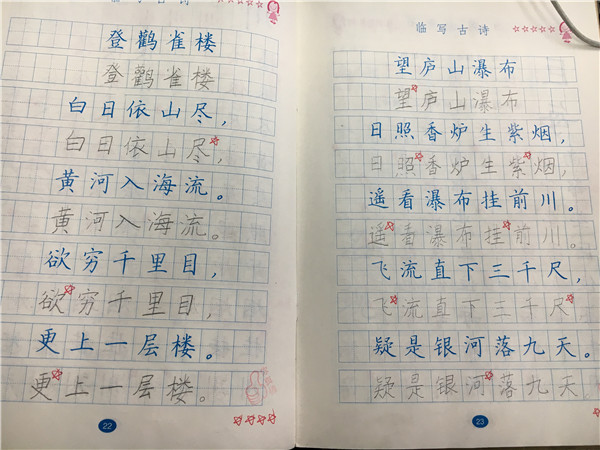 登鹳雀楼
登鹳雀楼
白日依山尽，
白日依山尽，
黄河入海流。
黄河入海流。
欲穷千里目，
欲穷千里目，
更上一层楼。
更上一层楼。
22
临写古诗
望庐山瀑布
望庐山瀑布
日照香炉生紫烟，
日照香炉生紫烟，
遥看瀑布挂前川。
遥看瀑布挂前川。
飞流直下三千尺，
飞流直下三千尺
疑是银河落九天。
疑是银河落九天
23